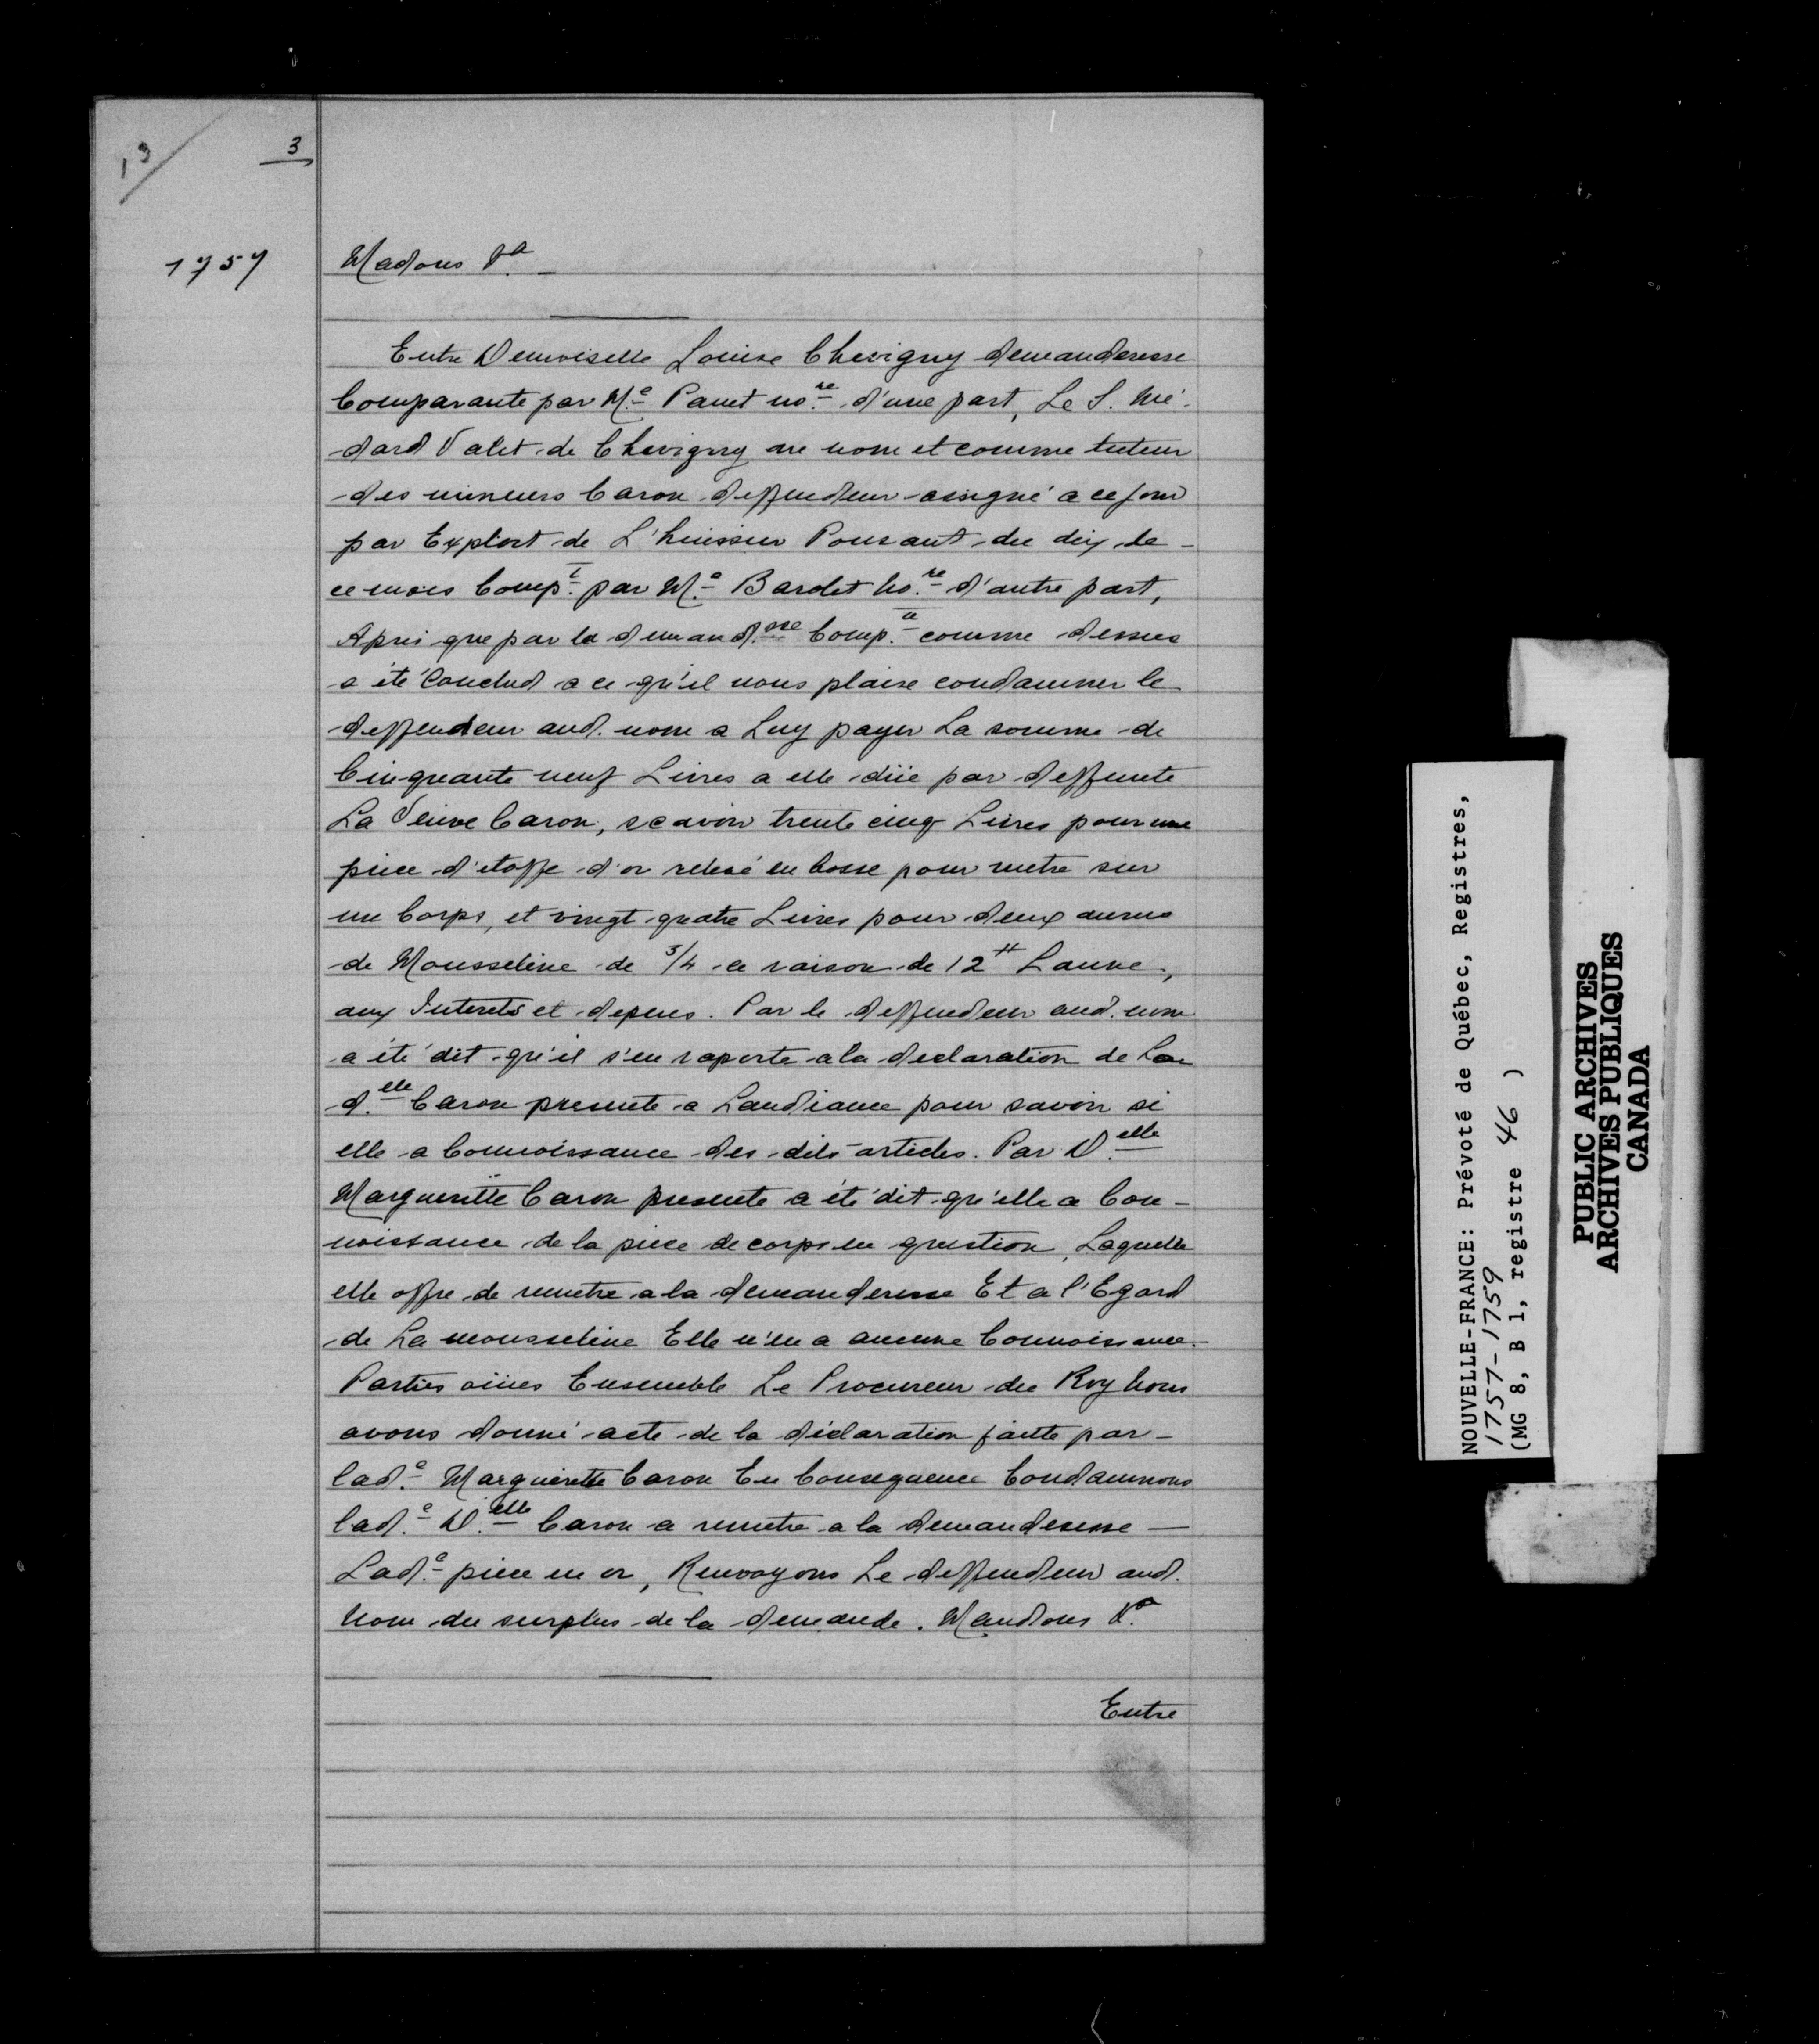 13
3
1757
Madons Va
Entre Demoiselle Louise Chevigny demanderesse
Comparante par Me Panet nore d'une part, Le S. Mé-
dard Valet de Chevigny au nom et comme tuteur
des mineurs Caron deffendeur assigné a ce jour
par Exploit de L'huissier Poussant du dix de
ce mois Compt par Me Bardet nore d'autre part,
Apres que par la demandsse Compte comme dessus
a été Conclud a ce qu'il nous plaise condamner le
deffendeur aud. nom a Luy payer La somme de
Cinquante neuf Livres a elle düe par deffunte
La Veuve Caron, scavoir trente cinq Livres pour une
piece d'étoffe d'or relevé en bosse pour metre sur
un Corps, et vingt quatre Livres pour deux aunes
de Mousseline de 3/4 a raison de 12tt Laune,
aux Interets et depens. Par le deffendeur aud. nom
a été dit qu'il s'en raporte a la declaration de La
d.elle Caron presente a Laudiance pour savoir si
elle a Connoissance des dits articles. Par D.elle
Margueritte Caron presente a été dit qu'elle a Con-
noissance de la piece de corps en question, Laquelle
elle offre de remetre a la demanderesse Et a l'Egard
de La mousseline Elle n'en a aucune Connoissance.
Parties oüies Ensemble Le Procureur du Roy Nous
avons donné acte de la déclaration faitte par
lad.e Marguerette Caron En Consequence Condamnons
lad.e D.elle Caron a remetre a la demanderesse
Lad.e piece en or, Renvoyons Le deffendeur aud.
Nom du surplus de la demande. Mandons Va
Entre
NOUVELLE-FRANCE: Prévoté de Québec, Registres,
1757-1759
(MG 8, B 1, registre 46 )
PUBLIC ARCHIVES
ARCHIVES PUBLIQUES
CANADA